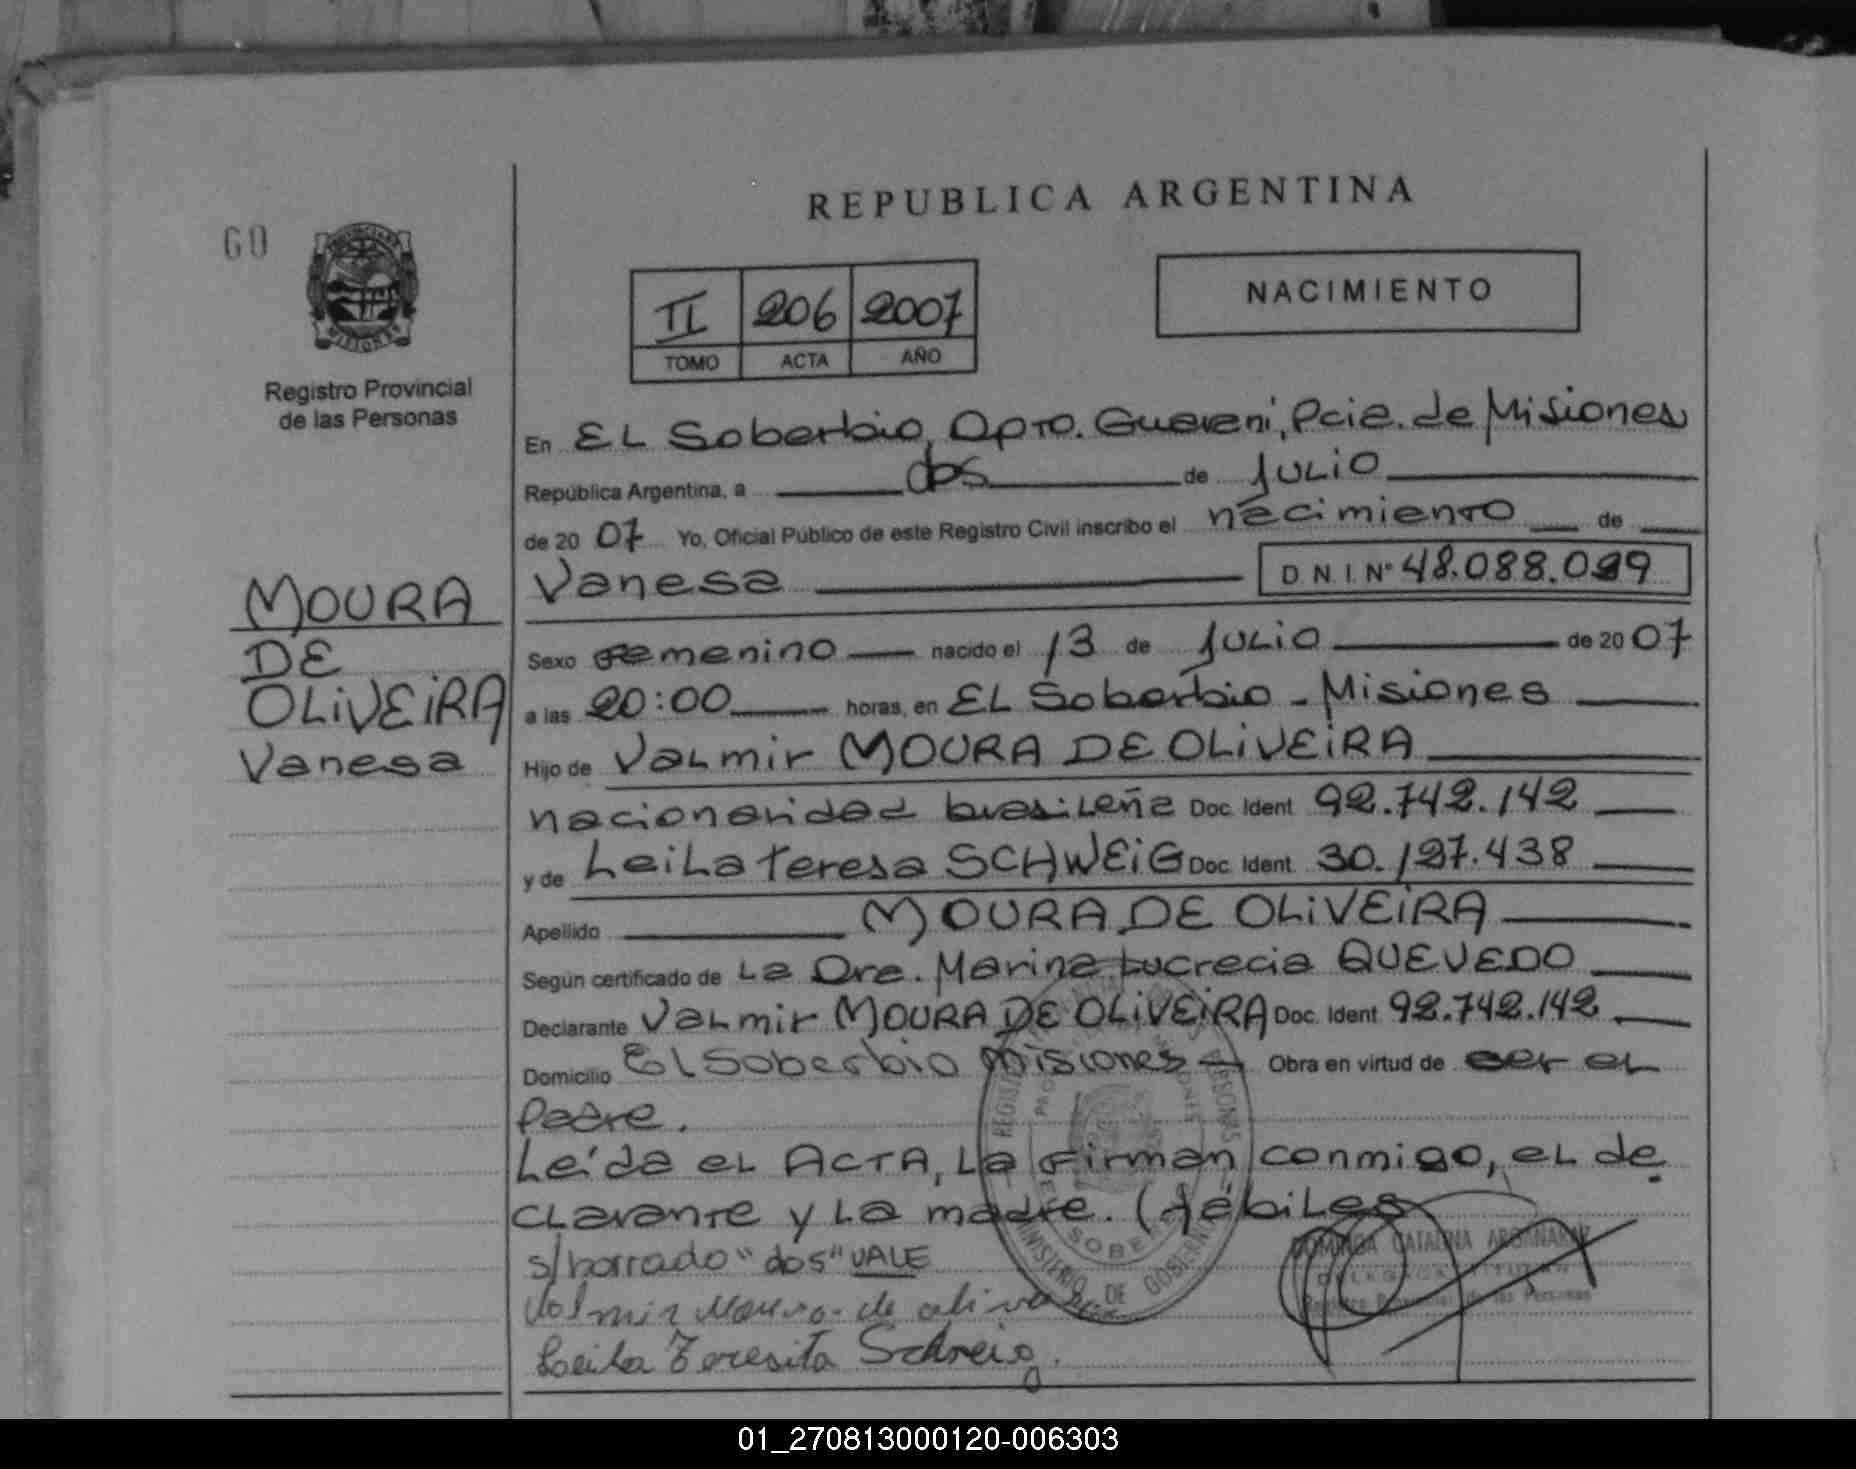 REPUBLICA ARGENTINA
60
NACIMIENTO
II 206 2007
TOMO ACTA AÑO
Registro Provincial
de las Personas
En EL Soberbio, Dpto. Guarani, Pcia. de Misiones
República Argentina, a dos de JULIO
de 20 07 Yo, Oficial Público de este Registro Civil inscribo el nacimiento de
Vanesa D.N.I.Nº 48.088.099
MOURA
DE
OLiVEiRA
Vanesa
Sexo Femenino nacido el 13 de JULIO de 20 07
a las 20:00 horas, en EL Soberbio - Misiones
Hijo de VaLmir MOURA DE OLiVEiRA
nacionalidad brasiLeña Doc. Ident. 92.742.142
y de LeiLa Teresa SCHWEiG Doc. Ident. 30.127.438
Apellido MOURA DE OLiVEiRA
Según certificado de La Dra. Marina Lucrecia QUEVEDO
Declarante VaLmir MOURA DE OLiVEiRA Doc. Ident. 92.742.142
Domicilio El Soberbio Misiones Obra en virtud de ser eL
Padre.
Leída eL ACTA, La Firman conmigo, eL de
cLarante y La madre.
s/borrado "dos" VALE
Valmir Moura de oliveira
Leila Teresita Schweig.
REGISTRO PERSONAS
MINISTERIO DE GOBIERNO
DOMINGA CATALINA ARGAÑARAZ
DELEGADA TITULAR
Registro Provincial de las Personas
01_270813000120-006303